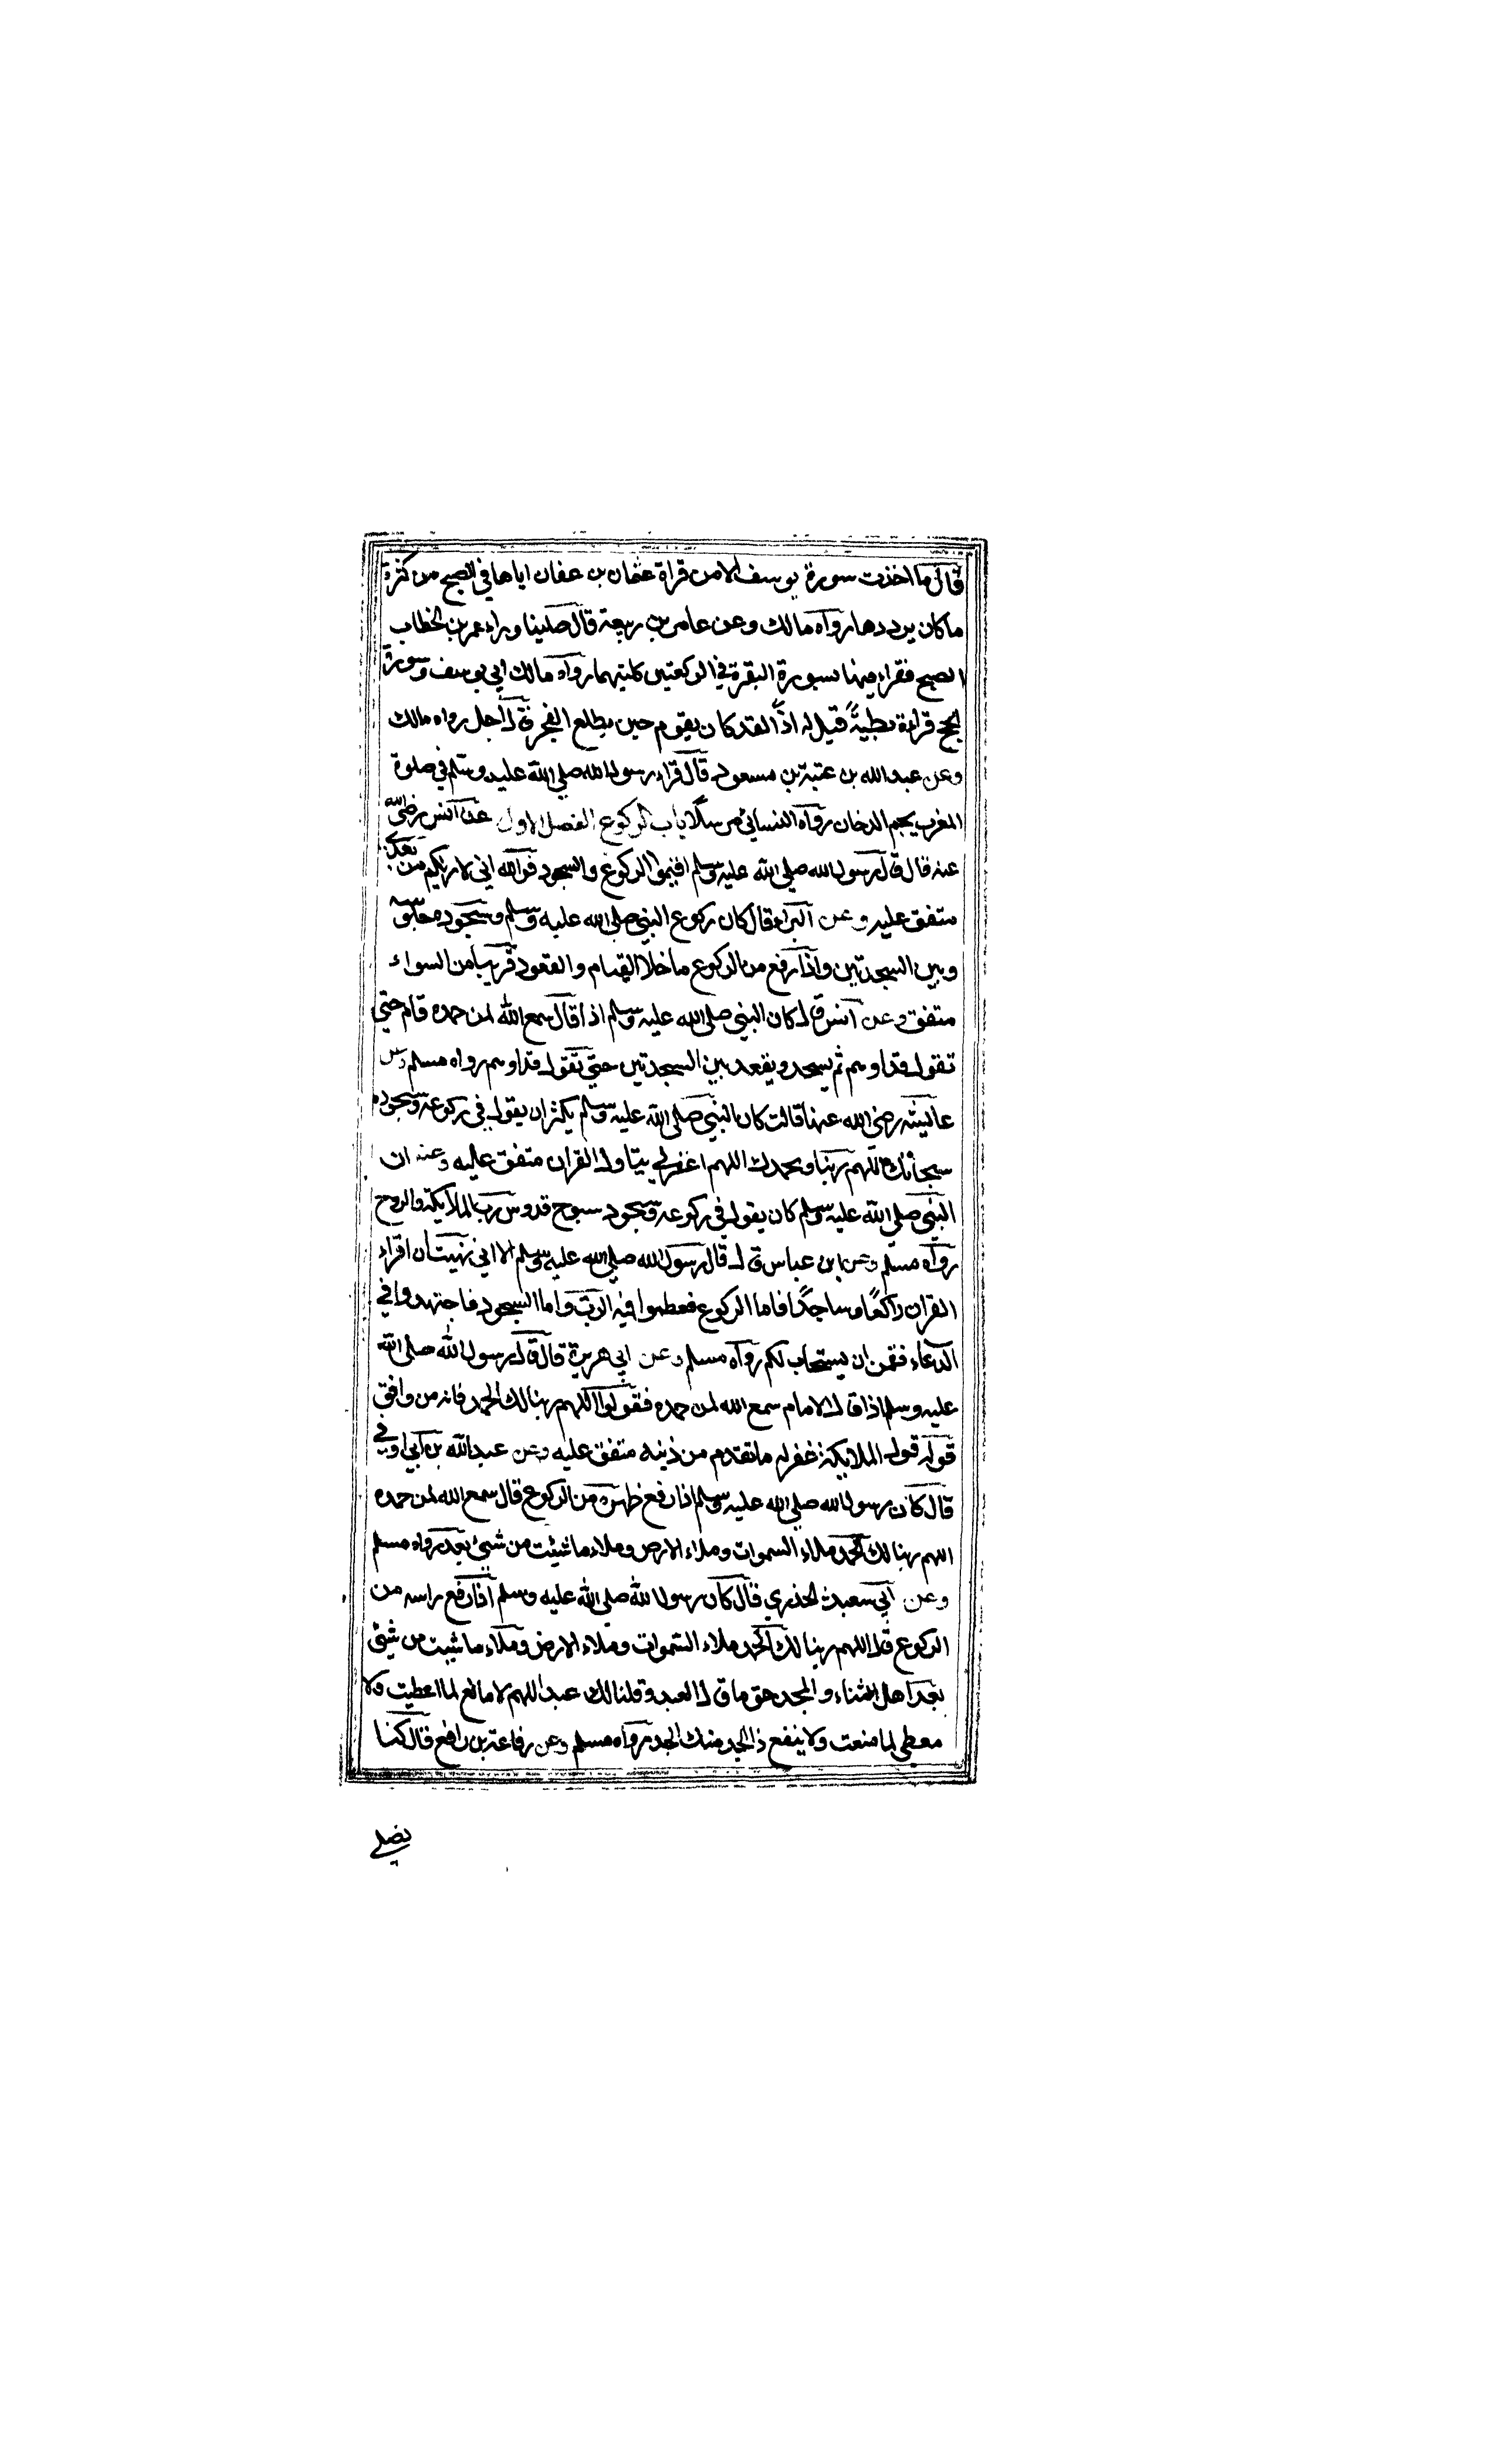 قال ما اخذت سورة يوسف الا من قراة عثمان بن عفان اياها في الصبح من كثرة
ما كان يرددها رواه مالك وعن عامر بن ربيعة قال صلينا وراء عمر بن الخطاب
الصبح فقراء فيها بسورة البقرة في الركعتين كلتيهما رواه مالك ابي يوسف وسورة
الحج قراءة بطيئة قيل له اذا لقد كان يقوم حين يطلع الفجر قال اجل رواه مالك
وعن عبد الله بن عتبة بن مسعود قال قراء رسول الله صلي الله عليه وسلم في صلوة
المغرب بحم الدخان رواه النسائي مرسلا باب الركوع الفصل الاول عن انس رضي الله
عنه قال قال رسول الله صلي الله عليه وسلم اقيموا الركوع والسجود فوالله اني لاريكم من بعدي
متفق عليه وعن البراء قال كان ركوع النبي صلي الله عليه وسلم وسجوده
وبين السجدتين واذا رفع من الركوع ما خلا القيام والقعود قريبا من السواء
متفق وعن انس قال كان النبي صلي الله عليه وسلم اذا قال سمع الله لمن حمده قام حتي
تقول قد اوهم ثم يسجد ويقعد بين السجدتين حتي تقول قد اوهم رواه مسلم وعن
عايشة رضي الله عنها قالت كان النبي صلي الله عليه وسلم يكثر ان يقول في ركوعه وسجوده
سبحانك اللهم ربنا وبحمدك اللهم اغفر لي يتاول القران متفق عليه وعنه ان
النبي صلي الله عليه وسلم كان يقول في ركوعه وسجود سبوح قدوس رب الملايكة والروح
رواه مسلم وعن ابن عباس قال قال رسول الله صلي الله عليه وسلم الا اني نهيت ان اقراء
القران راكعا وساجدا فاما الركوع فعظموا فيه الرب واما السجود فاجتهدوا في
الدعاء فقمن ان يستجاب لكم رواه مسلم وعن ابي هريرة قال قال رسول الله صلي الله
عليه وسلم اذا قال الامام سمع الله لمن حمده فقولوا اللهم ربنا لك الحمد فانه من وافق
قوله قول الملايكة غفر له ما تقدم من ذنبه متفق عليه وعن عبد الله بن ابي اوفي
قال كان رسول الله صلي الله عليه وسلم اذا رفع ظهره من الركوع قال سمع الله لمن حمده
اللهم ربنا لك الحمد ملاء السموات وملاء الارض وملاء ما شئت من شيئ بعد رواه مسلم
وعن ابي سعيد الخذري قال كان رسول الله صلي الله عليه وسلم اذا رفع راسه من
الركوع قال اللهم ربنا لك الحمد ملاء السموات وملاء الارض وملاء ما شيت من شيئ
بعد اهل الثناء والمجد حق ما قال العبد وقلنا لك عبد اللهم لا مانع لما اعطيت ولا
معطي لما منعت ولا ينفع ذا الجد منك الجد رواه مسلم وعن رفاعة بن رافع قال كنا
نصلي